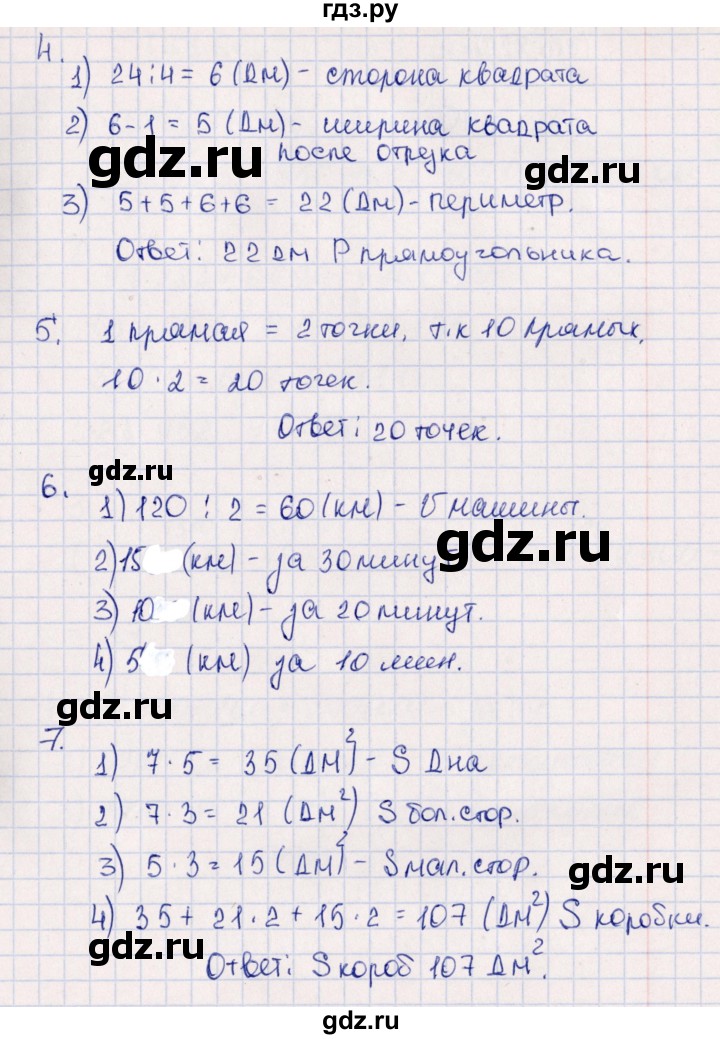 гдз.ру
4.
1) 24:4 = 6 (дм) - сторона квадрата
2) 6-1 = 5 (дм) - ширина квадрата
gdz.ru после отрезка
3) 5+5+6+6 = 22 (дм) - периметр.
Ответ: 22 дм P прямоугольника.
5. 1 прямая = 2 точки, т.к 10 прямых,
10 · 2 = 20 точек.
Ответ: 20 точек.
gdz.ru
6.
1) 120 : 2 = 60 (км) - v машины.
gdz.ru
2) 15 (км) - за 30 минут
3) 10 (км) - за 20 минут.
4) 5 (км) за 10 мин.
gdz.ru
7.
1) 7 · 5 = 35 (дм²) - S дна
2) 7 · 3 = 21 (дм²) S бол. стор.
3) 5 · 3 = 15 (дм²) - S мал. стор.
gdz.ru
4) 35 + 21 · 2 + 15 · 2 = 107 (дм²) S коробки.
gdz.ru
Ответ: S короб 107 дм².
gdz.ru